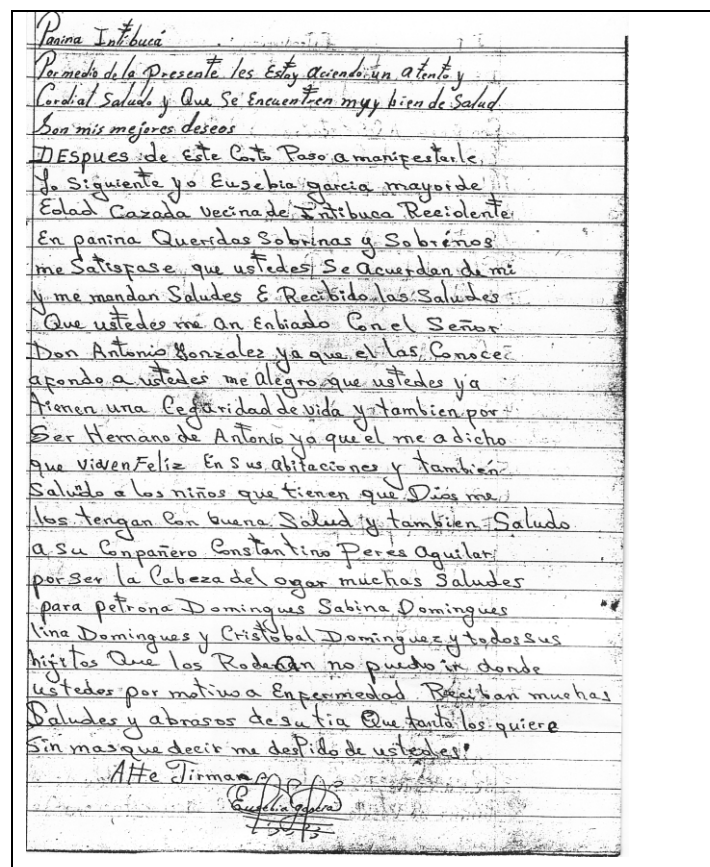 Panina Intibucá
Por medio de la Presente les Estoy aciendo un atento y
Cordial Saludo y Que Se Encuentren muy bien de Salud
Son mis mejores deseos
DEspues de Este Corto Paso a manifestarle
Lo Siguiente yo Eusebia garcia mayor de
Edad Cazada vecina de Intibuca Reciolente
En panina Queridas Sobrinas y Sobrenos
me Satisfase que ustedes Se Acuerdan de mi
y me mandan Saludes E Recibido las Saludes
Que ustedes me An Enbiado Con el Señor
Don Antonio Gonzalez ya que el las Conoce
afondo a ustedes me Alegro que ustedes ya
tienen una Ceguridad de vida y tambien por
Ser Hernano de Antonio ya que el me a dicho
que viven Feliz En Sus abitaciones y tambien
Saludo a los niños que tienen que Dios me
los tengan Con buena Salud y tambien Saludo
a Su Conpañero Constantino Peres Aguilar
por Ser la Cabeza del ogar muchas Saludes
para petrona Domingues Sabina Domingues
lina Domingues y Cristobal Dominguez y todos sus
hijitos Que los Rodean no puedo ir donde
ustedes por motivo a Enfermedad Reciban muchas
Saludes y abrasos de su tia Que tanto los quiere
Sin mas que decir me despido de ustedes.
Atte Firman
Eusebia garcia